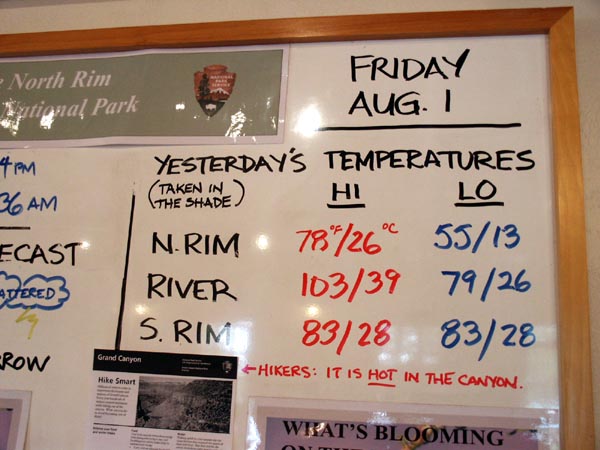 North Rim
National Park
NATIONAL PARK SERVICE
FRIDAY
AUG. 1
4 PM
36 AM
YESTERDAY'S TEMPERATURES
(TAKEN IN THE SHADE)
HI LO
N. RIM 78°F/26°C 55/13
RIVER 103/39 79/26
S. RIM 83/28 83/28
ECAST
ATTERED
ROW
←HIKERS: IT IS HOT IN THE CANYON.
Grand Canyon
Hike Smart
WHAT'S BLOOMING
ON TH